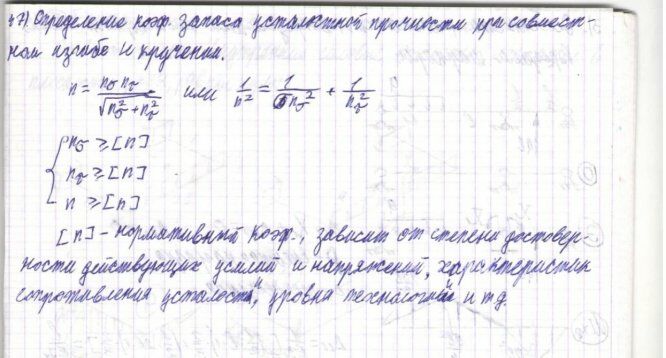 37) Определение коэф. запаса усталостной прочности при совмест-
ном изгибе и кручении.
n = nσ nτ / √(nσ² + nτ²) или 1/n² = 1/nσ² + 1/nτ²
{ nσ ≥ [n]
nτ ≥ [n]
n ≥ [n]
[n] - нормативный коэф., зависит от степени достовер-
ности действующих усилий и напряжений, характеристик
сопротивления усталости, уровня технологий и т.д.